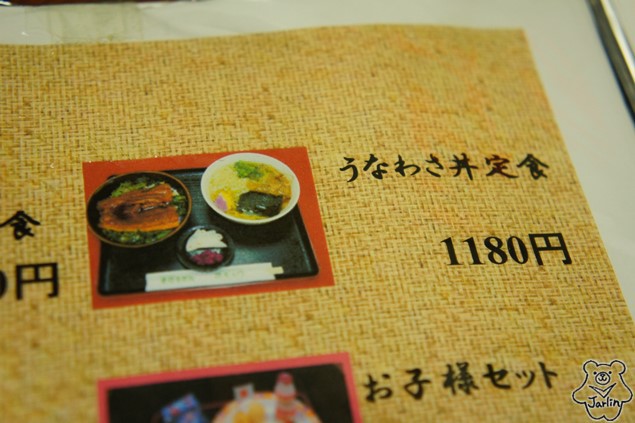 うなわさ丼定食
1180円
食
0円
お子様セット
Jarlin